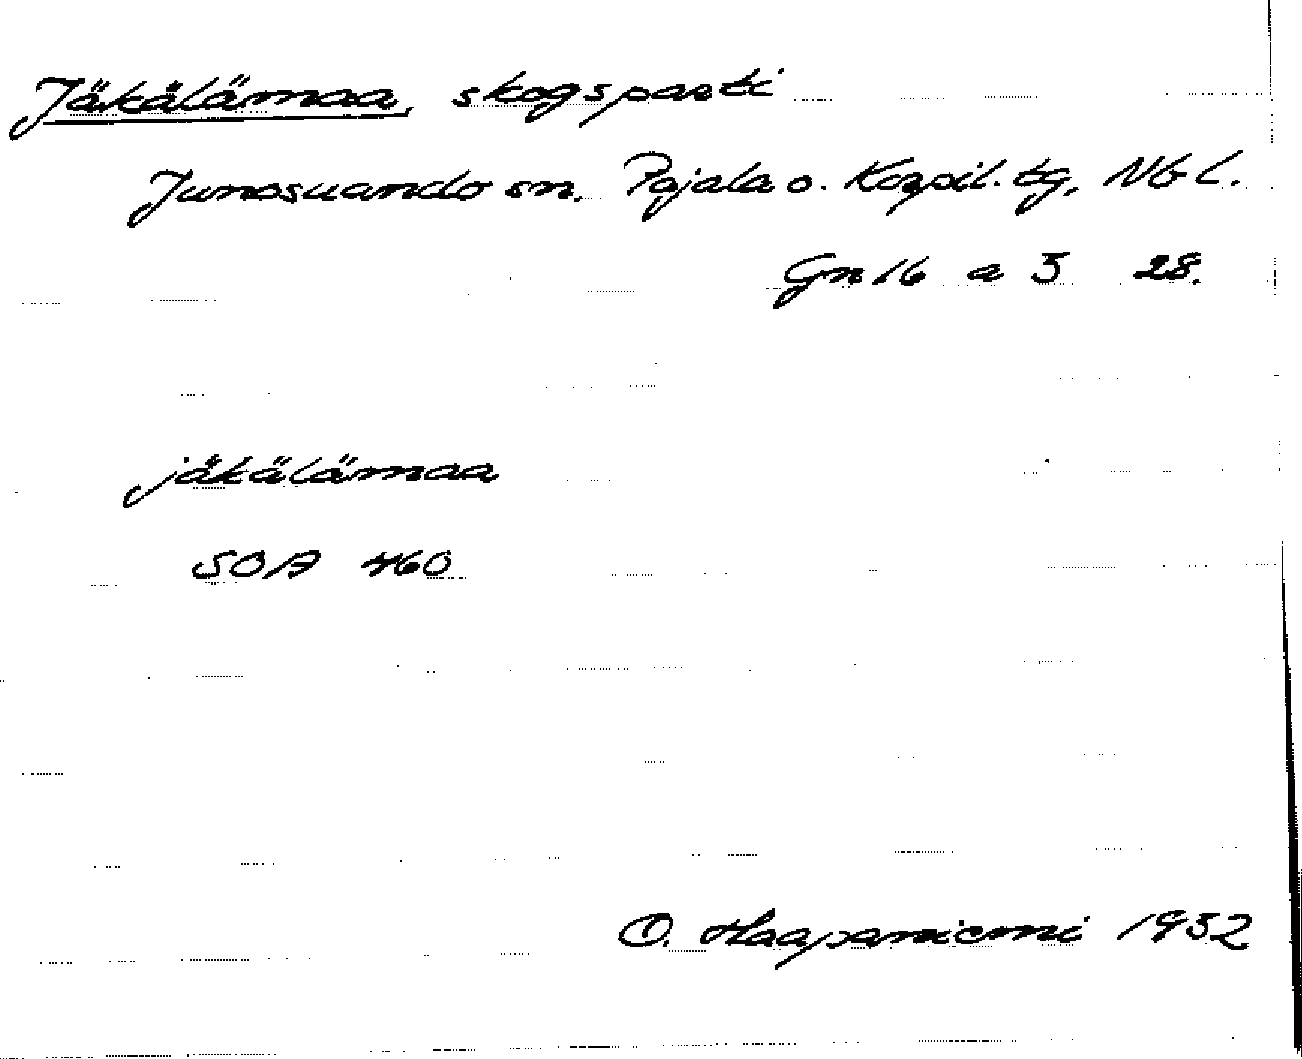 Jäkälämaa, skogsparti
Junosuando sn. Pajala o. Korpil. tg, Nb L.
Gn 16 a 3 28.
jäkälämaa
SOA 460
O. Haapaniemi 1952